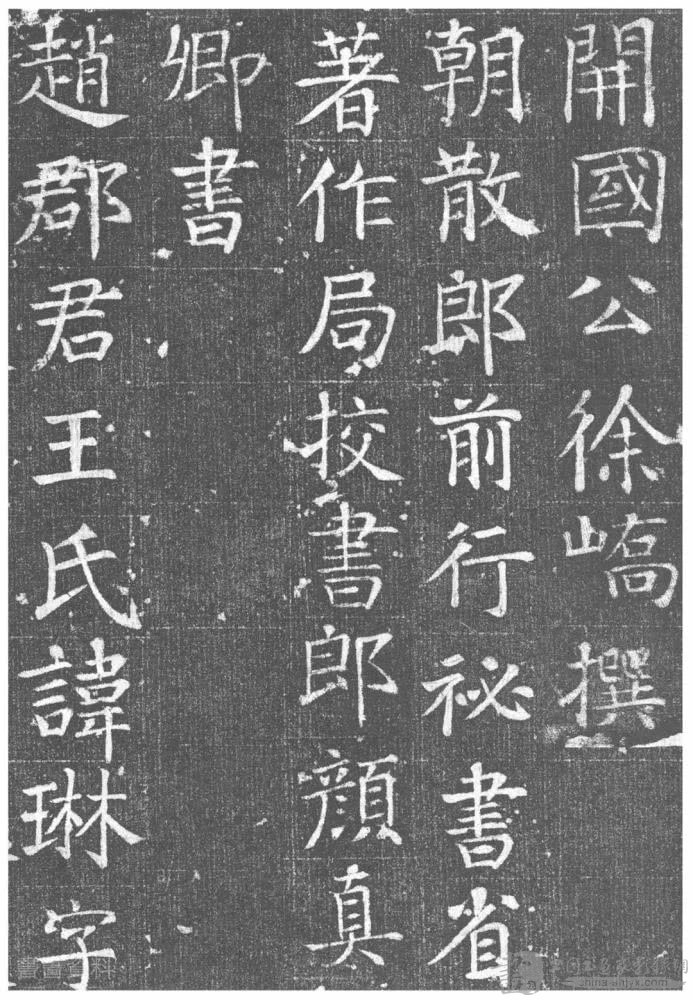 開國公徐嶠撰
朝散郎前行祕書省
著作局挍書郎顔真
卿書
趙郡君王氏諱琳字
china-shjyx.com